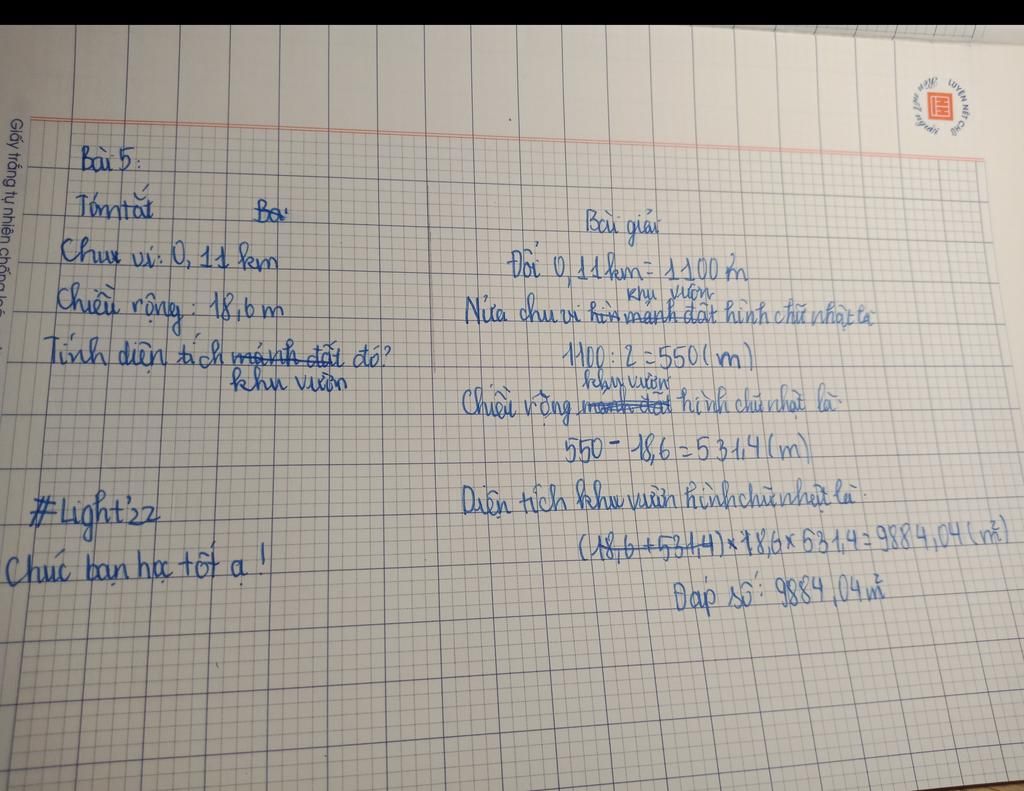 Giấy trắng tự nhiên chống
LUYỆN NÉT CHỮ
Bài 5:
Tóm tắt
Chu vi: 0,11 km
Chiều rộng: 18,6 m
Tính diện tích mảnh đất đó?
khu vườn
#Light'22
Chúc bạn học tốt ạ!
Bài giải
Đổi 0,11km = 1100 m
khu vườn
Nửa chu vi hìn manh đất hình chữ nhật là
1100 : 2 = 550 (m)
khu vườn
Chiều rộng manh đất hình chữ nhật là:
550 - 18,6 = 531,4 (m)
Diện tích khu vườn hình chữ nhật là:
(18,6 + 531,4) × 18,6 × 531,4 = 9884,04 (m²)
Đáp số: 9884,04 m²